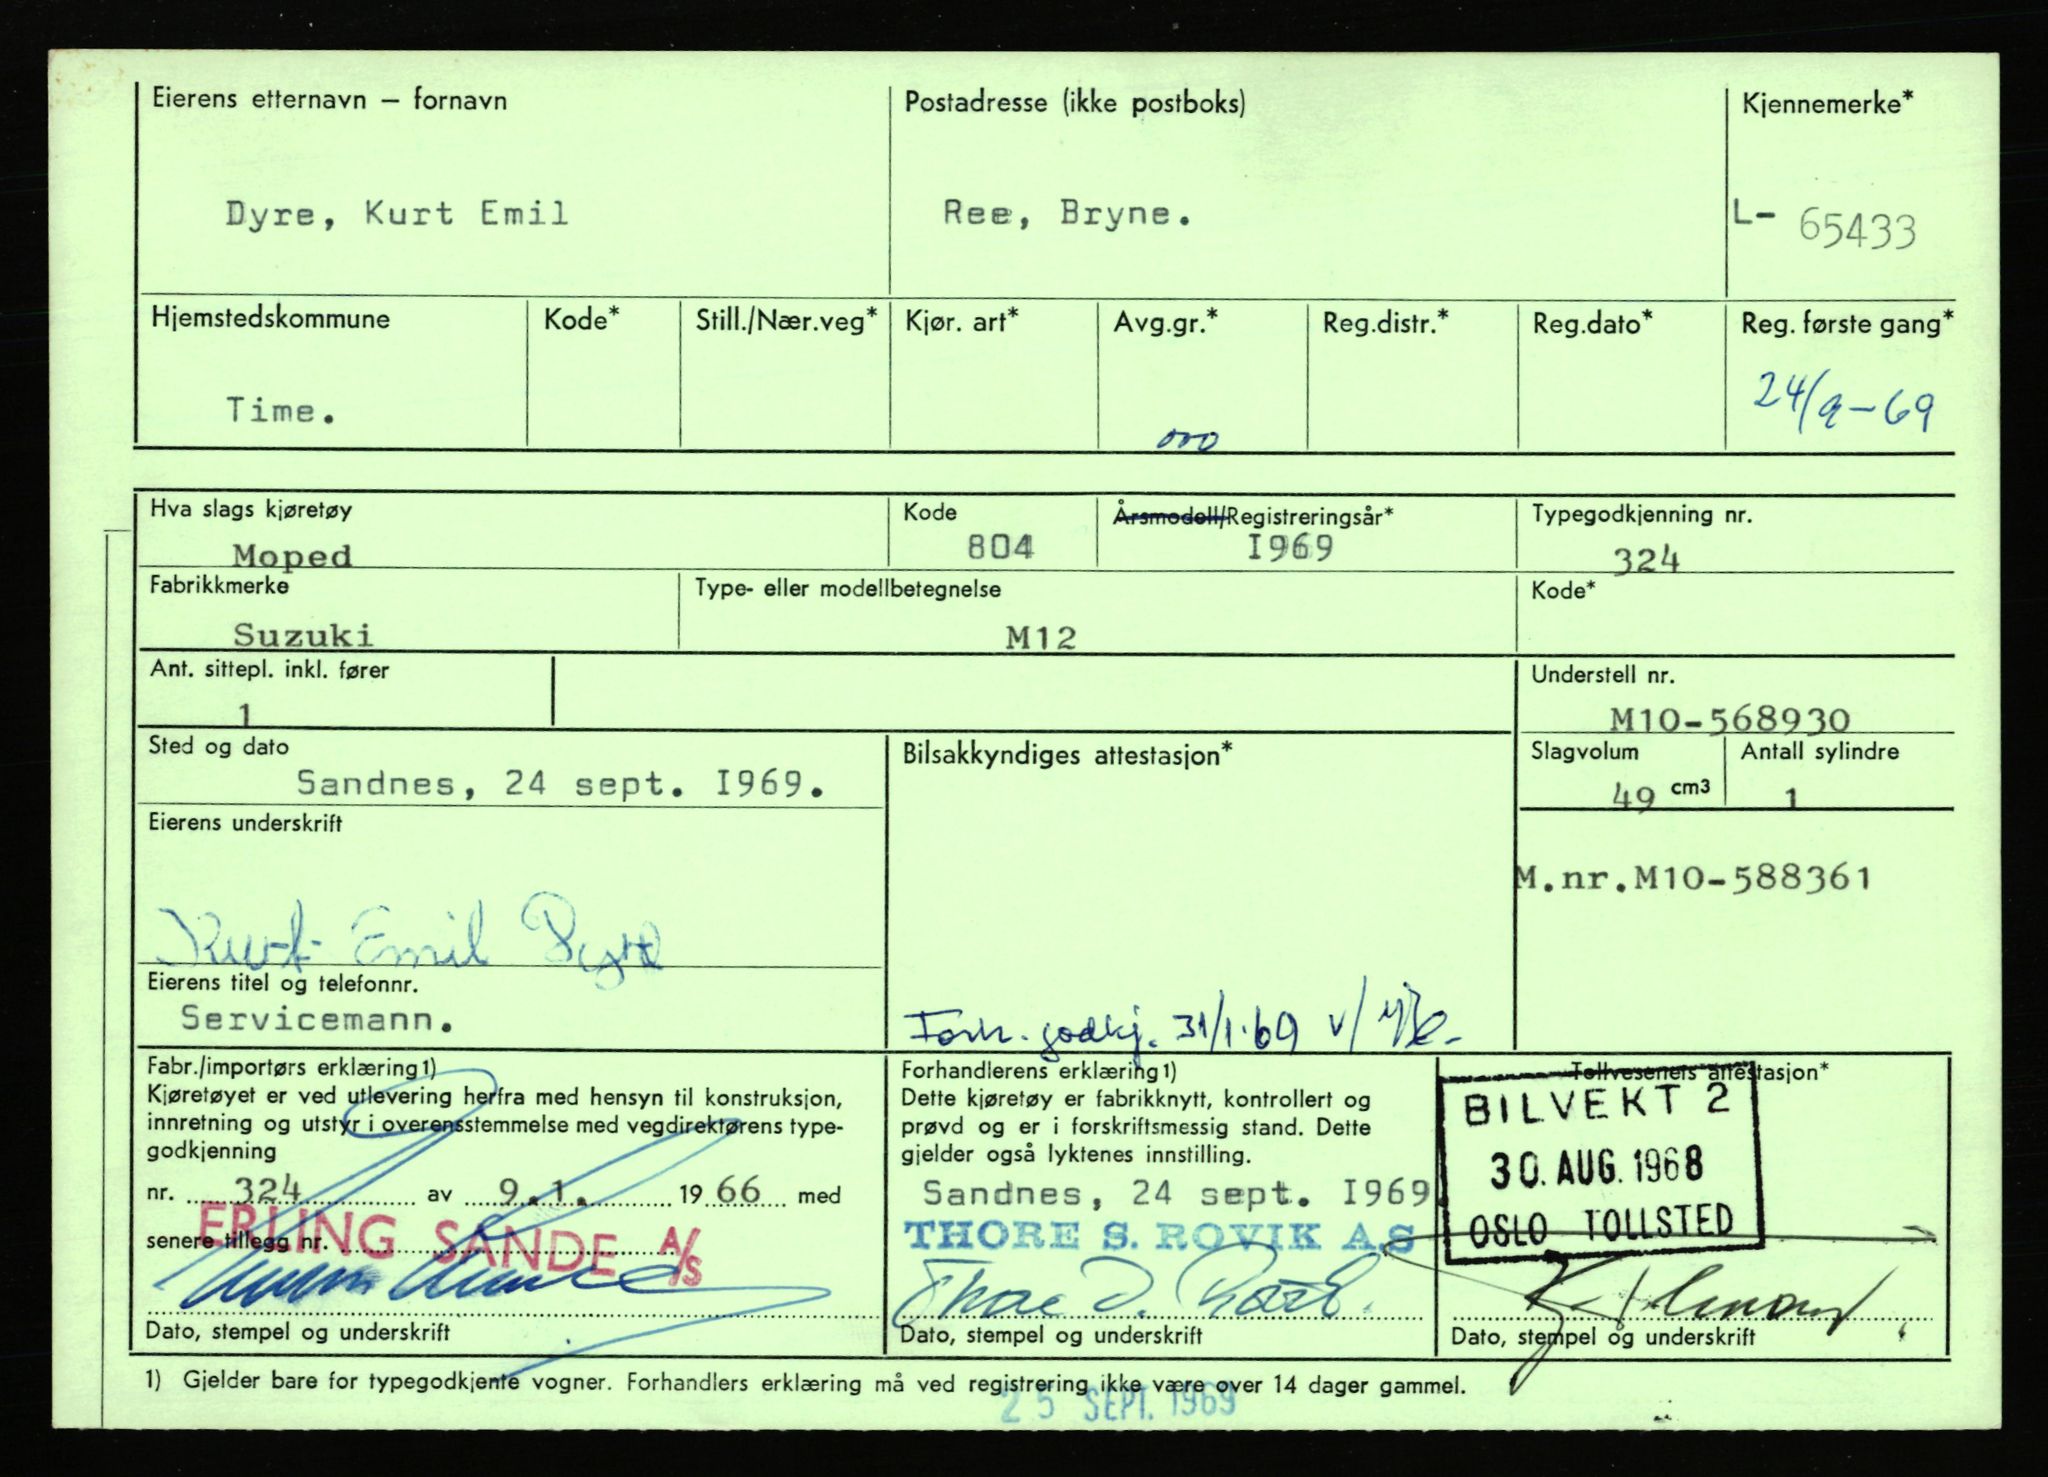 Eierens etternavn – fornavn
Postadresse (ikke postboks)
Kjennemerke*
Dyre, Kurt Emil
Ree, Bryne.
L- 65433
Hjemstedskommune
Kode*
Still./Nær.veg*
Kjør. art*
Avg.gr.*
Reg.distr.*
Reg.dato*
Reg. første gang*
Time.
000
24/9-69
Hva slags kjøretøy
Kode
Årsmodell/Registreringsår*
Typegodkjenning nr.
Moped
804
I969
324
Fabrikkmerke
Type- eller modellbetegnelse
Kode*
Suzuki
M12
Ant. sittepl. inkl. fører
1
Understell nr.
M10-568930
Sted og dato
Sandnes, 24 sept. I969.
Bilsakkyndiges attestasjon*
Slagvolum
49 cm3
Antall sylindre
1
Eierens underskrift
Kurt Emil Dyre
M.nr.M10-588361
Eierens titel og telefonnr.
Servicemann.
Forh. godkj. 31/1-69 v/
Fabr./importørs erklæring1)
Kjøretøyet er ved utlevering herfra med hensyn til konstruksjon,
innretning og utstyr i overensstemmelse med vegdirektørens type-
godkjenning
nr. 324 av 9.1. 1966 med
senere tillegg nr.
ERLING SANDE A/S
Dato, stempel og underskrift
Forhandlerens erklæring1)
Dette kjøretøy er fabrikknytt, kontrollert og
prøvd og er i forskriftsmessig stand. Dette
gjelder også lyktenes innstilling.
Sandnes, 24 sept. I969.
THORE S. ROVIK A.S
Dato, stempel og underskrift
Tollvesenets attestasjon*
BILVEKT 2
30. AUG. 1968
OSLO TOLLSTED
Dato, stempel og underskrift
1) Gjelder bare for typegodkjente vogner. Forhandlers erklæring må ved registrering ikke være over 14 dager gammel.
25 SEPT. 1969